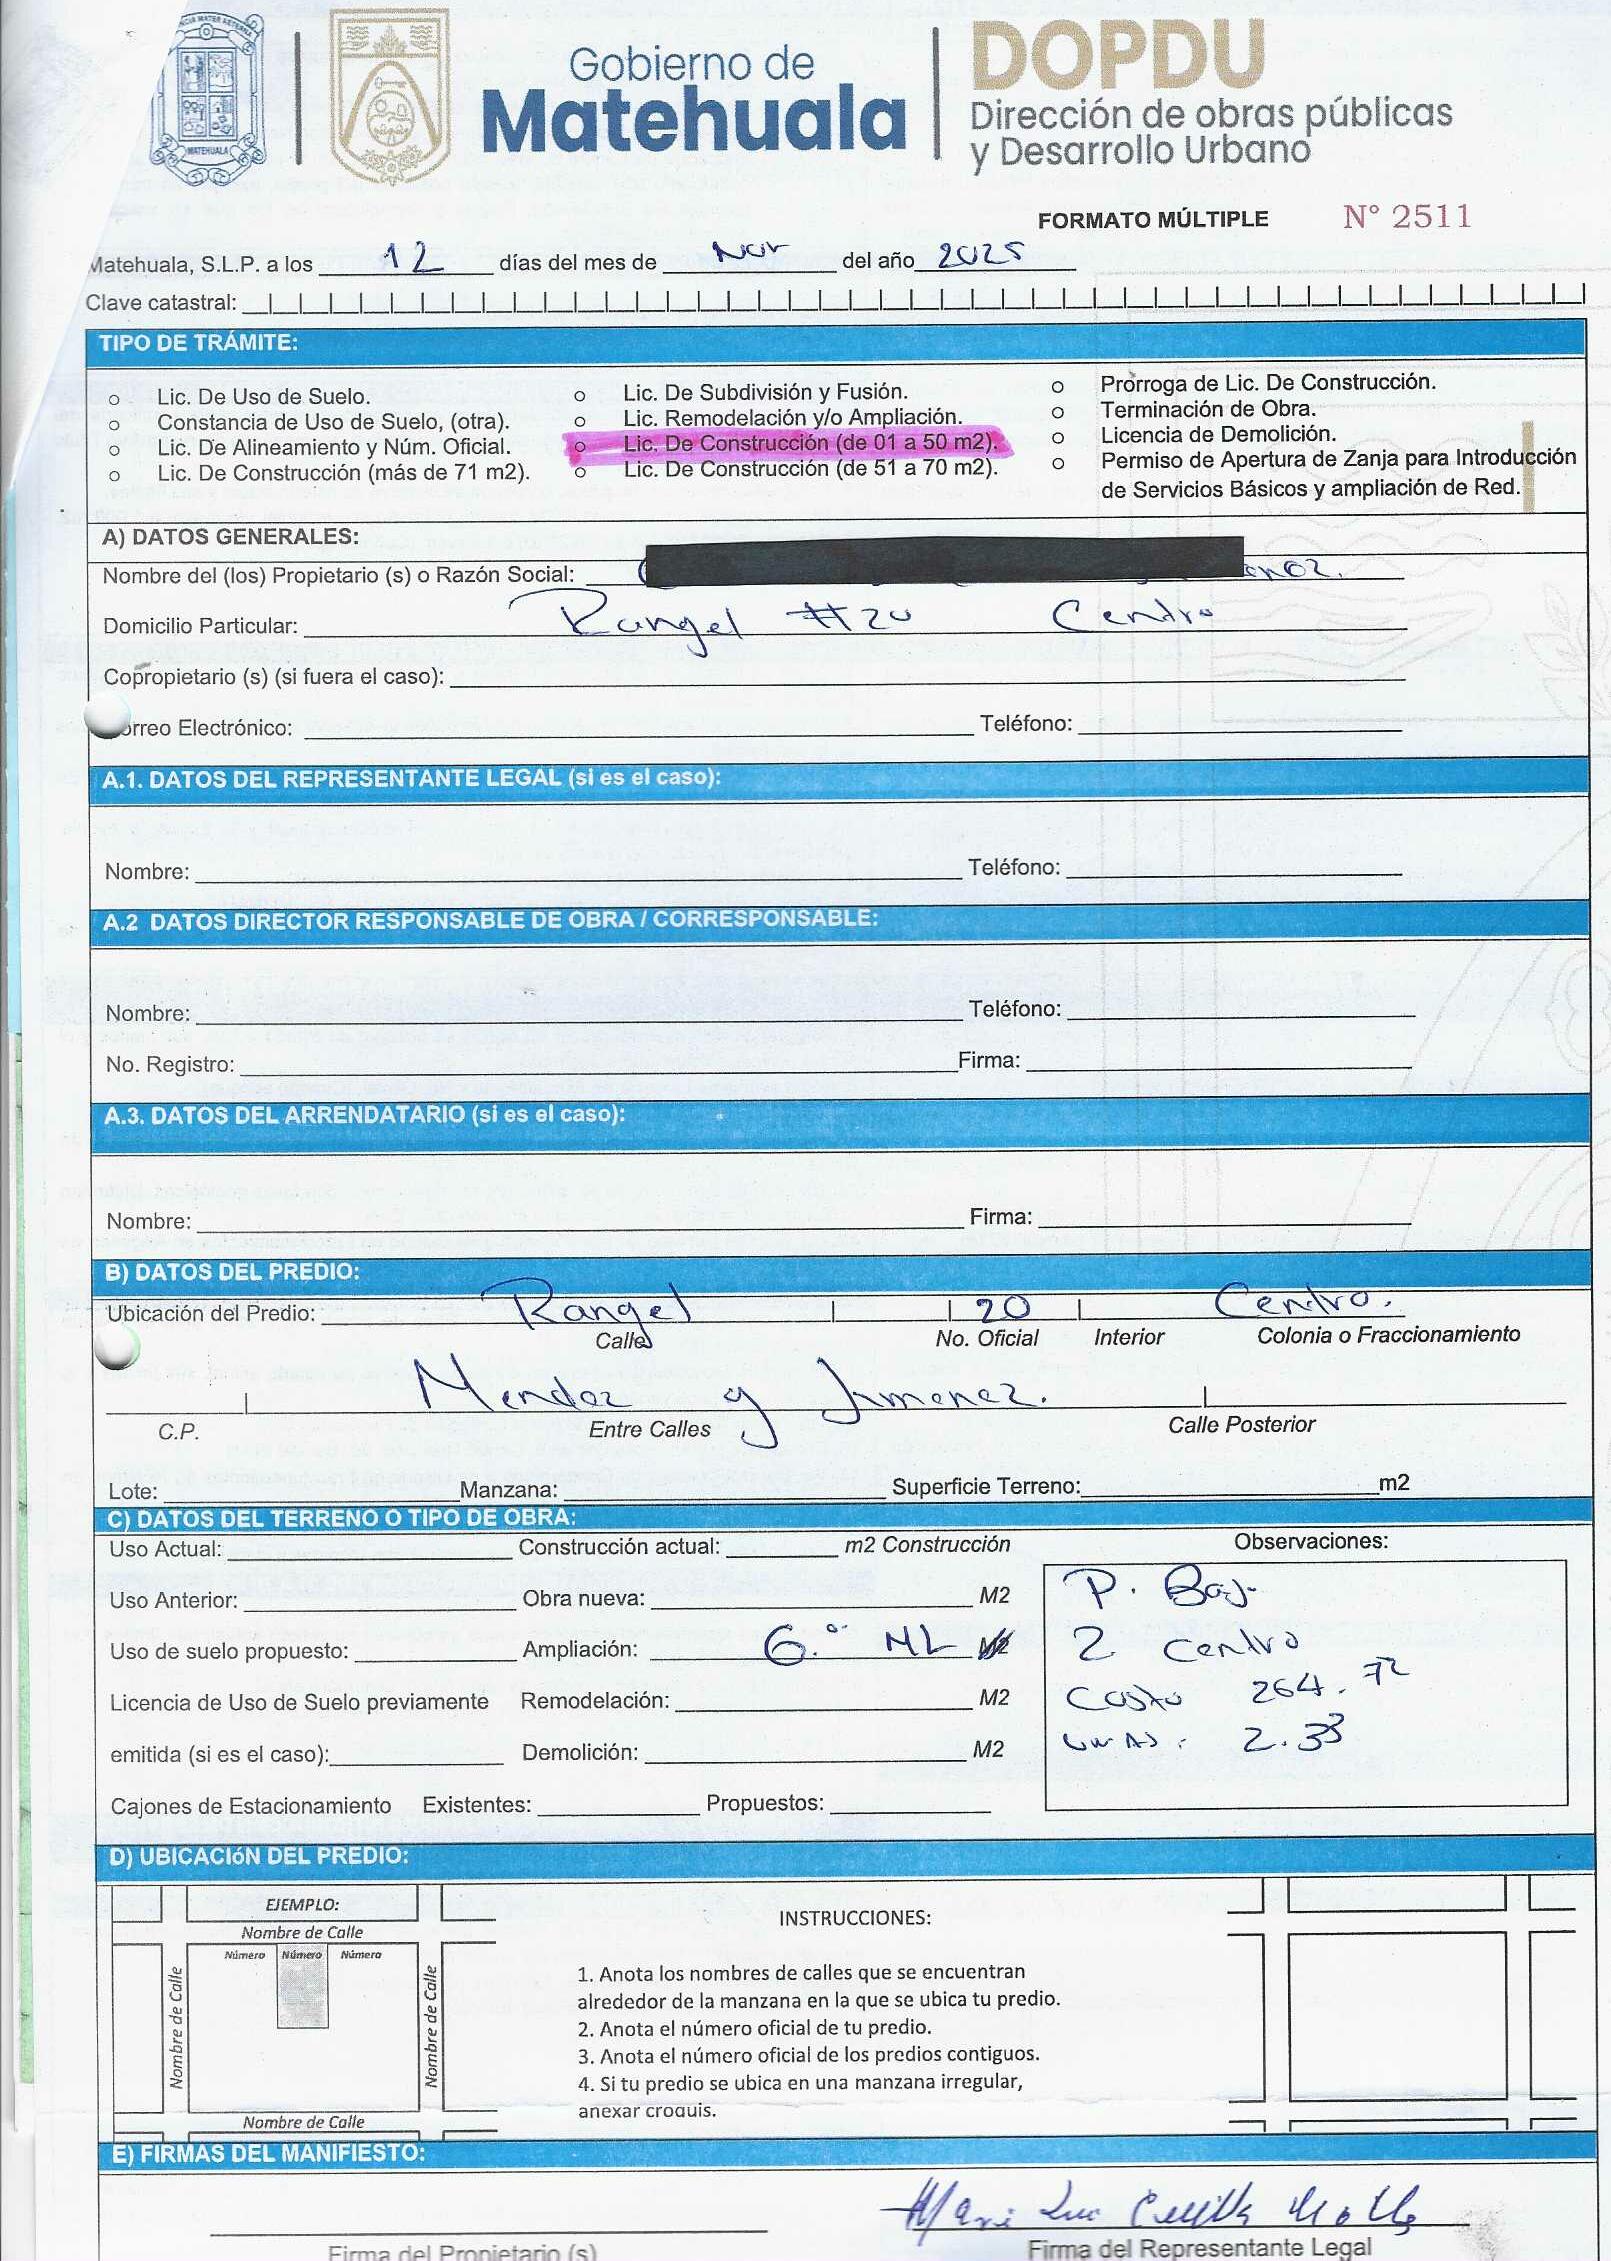 MATEHUALA
Gobierno de
Matehuala
DOPDU
Dirección de obras públicas
y Desarrollo Urbano
FORMATO MÚLTIPLE N° 2511
Matehuala, S.L.P. a los 12 días del mes de Nov del año 2025
Clave catastral:
TIPO DE TRÁMITE:
Lic. De Uso de Suelo.
Constancia de Uso de Suelo, (otra).
Lic. De Alineamiento y Núm. Oficial.
Lic. De Construcción (más de 71 m2).
Lic. De Subdivisión y Fusión.
Lic. Remodelación y/o Ampliación.
Lic. De Construcción (de 01 a 50 m2).
Lic. De Construcción (de 51 a 70 m2).
Prórroga de Lic. De Construcción.
Terminación de Obra.
Licencia de Demolición.
Permiso de Apertura de Zanja para Introducción
de Servicios Básicos y ampliación de Red.
A) DATOS GENERALES:
Nombre del (los) Propietario (s) o Razón Social:
Domicilio Particular: Rangel #20 Centro
Copropietario (s) (si fuera el caso):
orreo Electrónico: Teléfono:
A.1. DATOS DEL REPRESENTANTE LEGAL (si es el caso):
Nombre: Teléfono:
A.2 DATOS DIRECTOR RESPONSABLE DE OBRA / CORRESPONSABLE:
Nombre: Teléfono:
No. Registro: Firma:
A.3. DATOS DEL ARRENDATARIO (si es el caso):
Nombre: Firma:
B) DATOS DEL PREDIO:
Ubicación del Predio: Rangel 20 Centro.
Calle No. Oficial Interior Colonia o Fraccionamiento
Mendez y Jimenez.
C.P. Entre Calles Calle Posterior
Lote: Manzana: Superficie Terreno: m2
C) DATOS DEL TERRENO O TIPO DE OBRA:
Uso Actual: Construcción actual: m2 Construcción
Uso Anterior: Obra nueva: M2
Uso de suelo propuesto: Ampliación: 6.⁰⁰ ML M2
Licencia de Uso de Suelo previamente Remodelación: M2
emitida (si es el caso): Demolición: M2
Cajones de Estacionamiento Existentes: Propuestos:
Observaciones:
P. Baj.
2 Centro
Costo 264.72
2.33
D) UBICACIóN DEL PREDIO:
EJEMPLO:
Nombre de Calle
Número Número Número
Nombre de Calle
Nombre de Calle
Nombre de Calle
INSTRUCCIONES:
1. Anota los nombres de calles que se encuentran
alrededor de la manzana en la que se ubica tu predio.
2. Anota el número oficial de tu predio.
3. Anota el número oficial de los predios contiguos.
4. Si tu predio se ubica en una manzana irregular,
anexar croquis.
E) FIRMAS DEL MANIFIESTO:
Firma del Propietario (s)
Firma del Representante Legal